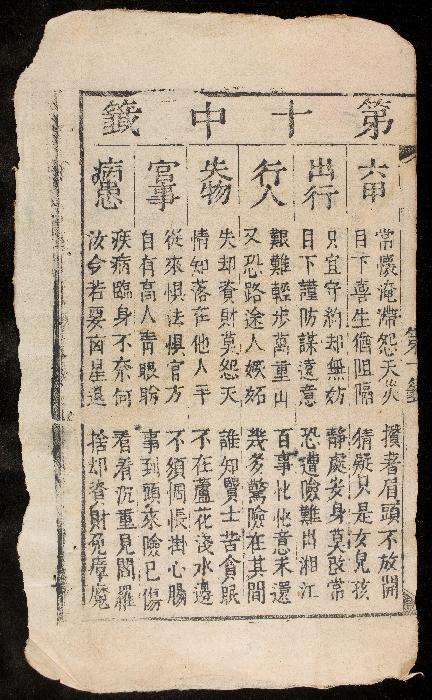 第十中籤
第十籤
六甲
常懷淹滯怨天災 攢著眉頭不放開
目下喜生猶阻隔 猜疑只是女兒孩
出行
只宜守約却無妨 靜處安身莫改常
目下謹防謀遠意 恐遭險難出湘江
行人
艱難輕步萬重山 百事忙忙意未還
又恐路途人嫉妬 幾多驚險在其間
失物
失却資財莫怨天 誰知賢士苦貪眠
情知落在他人手 不在蘆花淺水邊
官事
從來惧法惧官方 不須惆悵掛心腸
自有高人青眼盼 事到頭來險已傷
病患
疾病臨身不奈何 看看沉重見閻羅
汝今若要凶星退 捨却資財免瘴魔